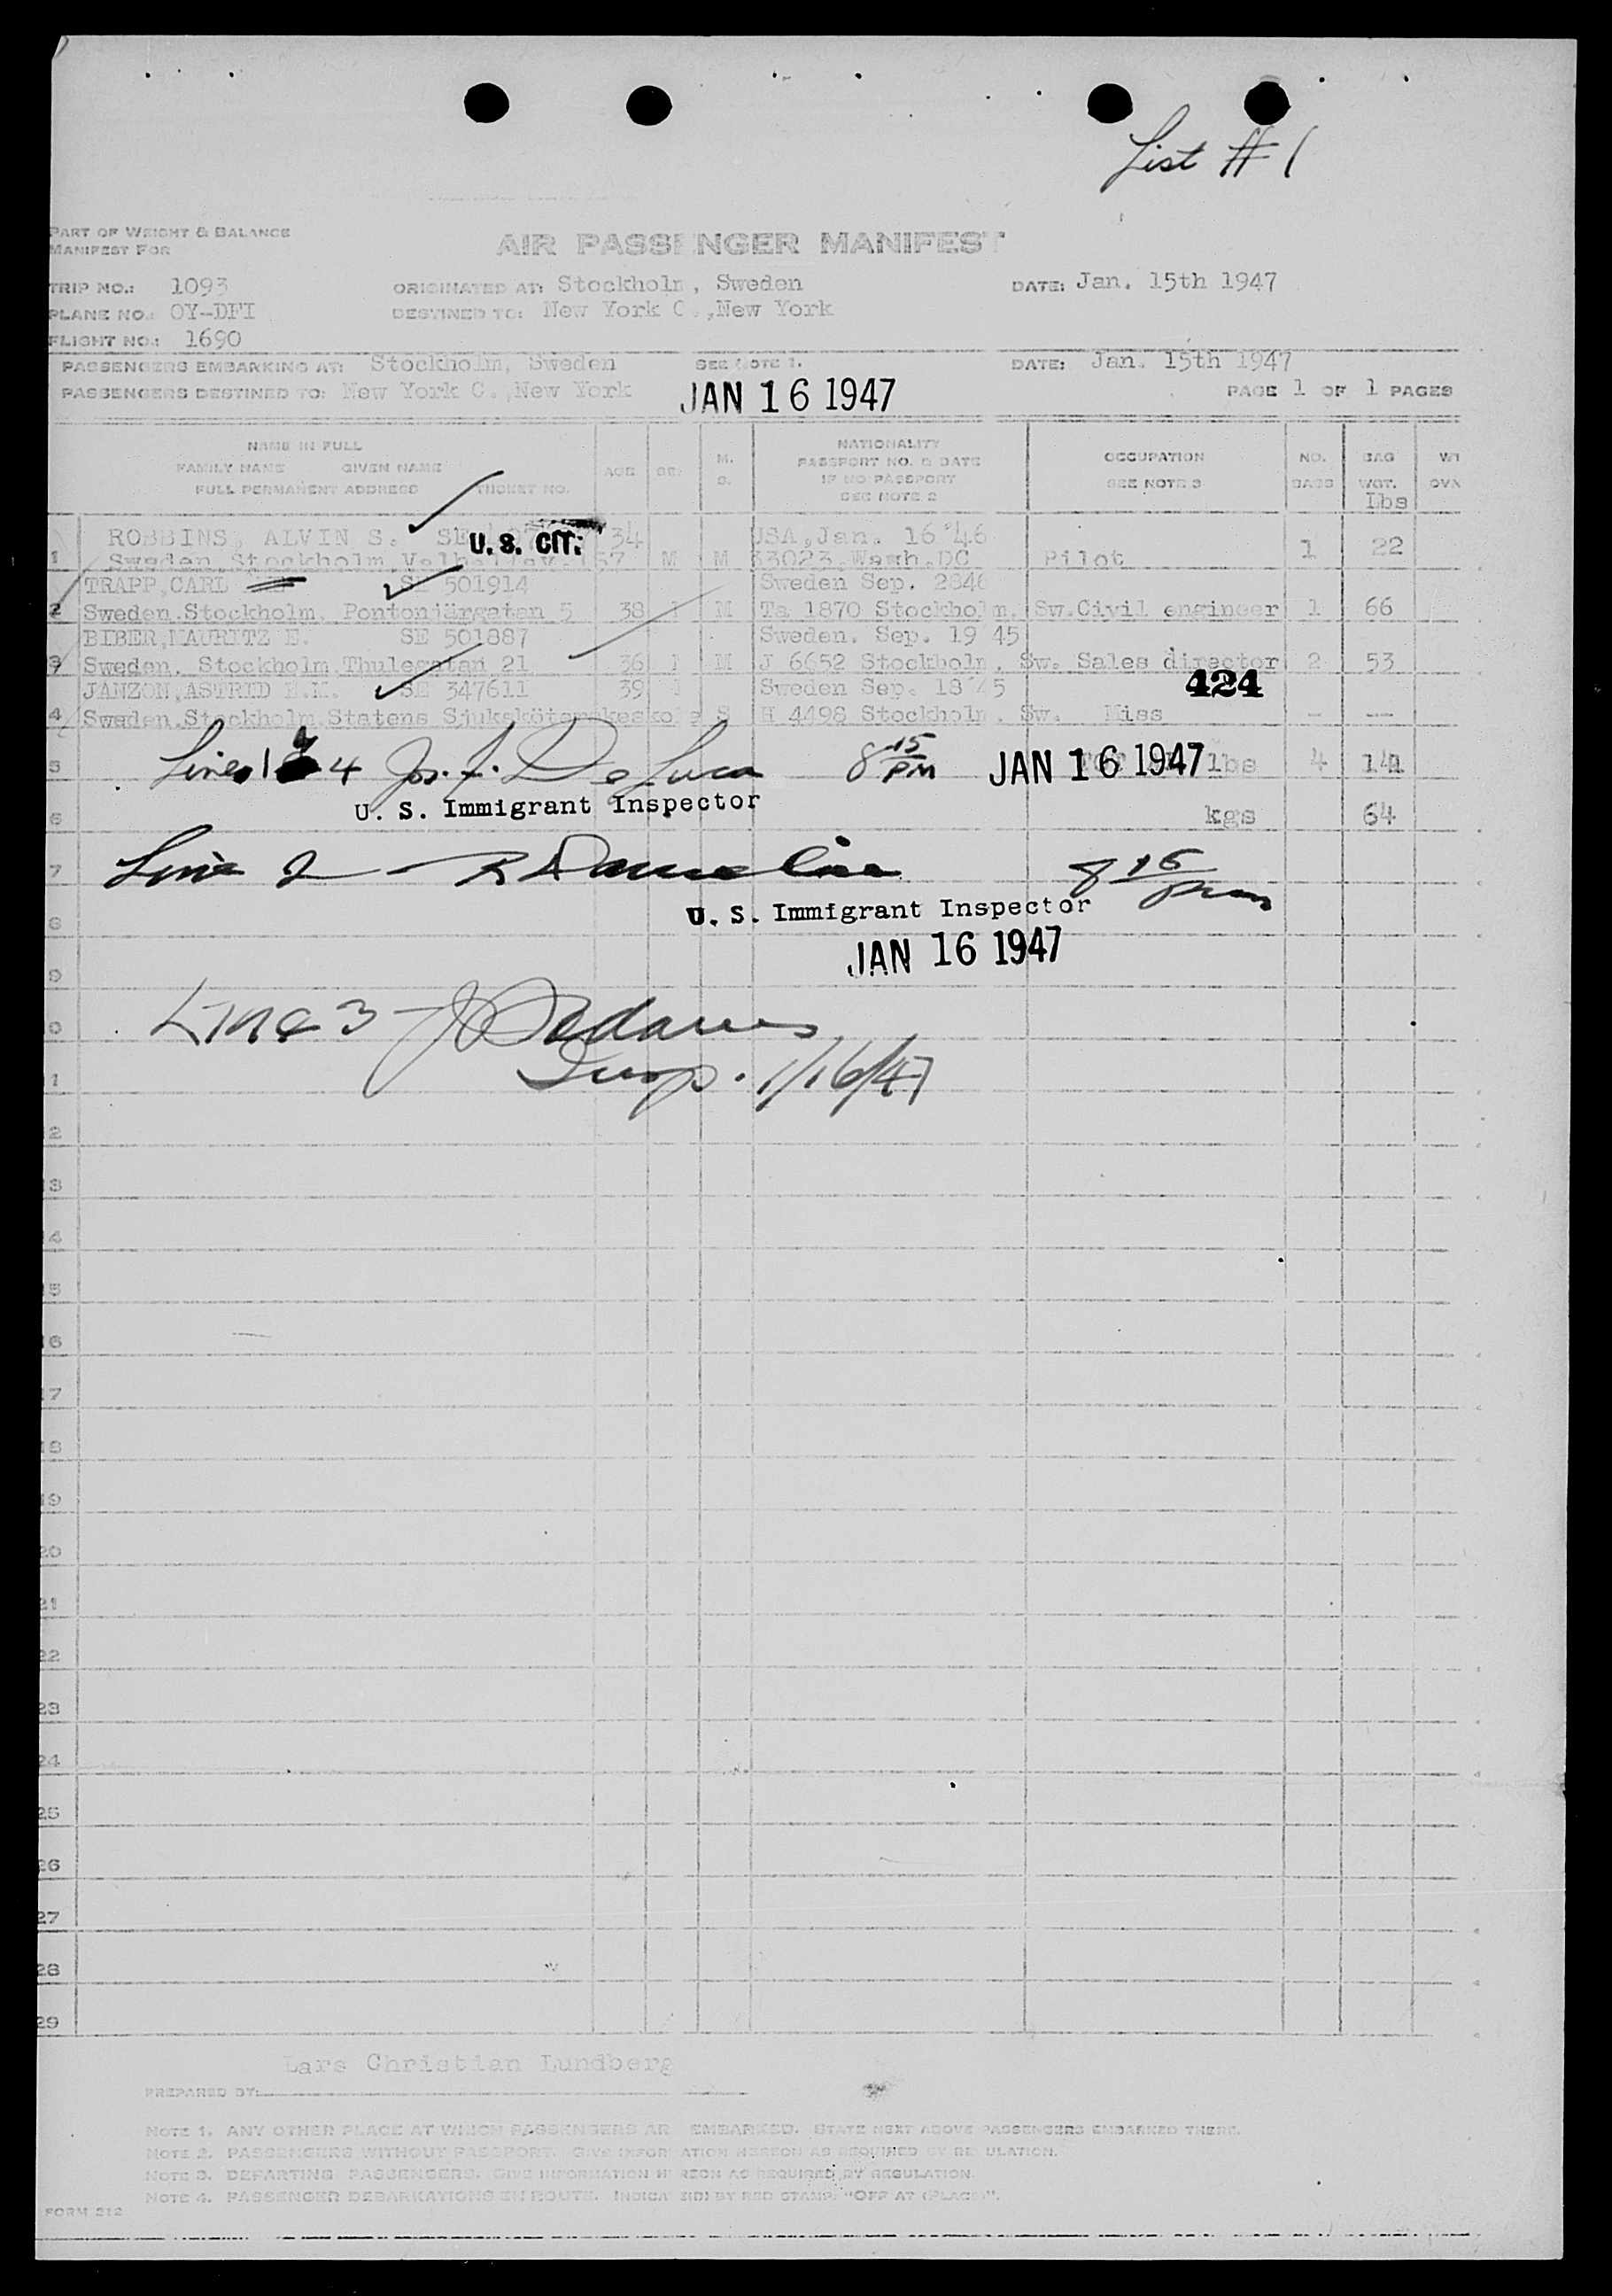 List # 1
PART OF WEIGHT & BALANCE
MANIFEST FOR
AIR PASSENGER MANIFEST
TRIP NO.: 1093 ORIGINATED AT: Stockholm, Sweden DATE: Jan. 15th 1947
PLANE NO.: OY-DFI DESTINED TO: New York C.,New York
FLIGHT NO.: 1690
PASSENGERS EMBARKING AT: Stockholm, Sweden SEE NOTE 1. DATE: Jan. 15th 1947
PASSENGERS DESTINED TO: New York C.,New York JAN 16 1947 PAGE 1 OF 1 PAGES
NAME IN FULL
FAMILY NAME GIVEN NAME
FULL PERMANENT ADDRESS TICKET NO. AGE SEX M. S. NATIONALITY
PASSPORT NO. & DATE
IF NO PASSPORT
SEE NOTE 2
OCCUPATION
SEE NOTE 3
NO. BAGS
BAG WGT. lbs
1 ROBBINS, ALVIN S. U. S. CIT. 34 USA,Jan. 16 46
Sweden,Stockholm, 57 M M 33023,Wash.DC Pilot 1 22
TRAPP,CARL SE 501914 Sweden Sep. 2846
2 Sweden.Stockholm, Pontonjärgatan 5 38 M Ta 1870 Stockholm, Sw.Civil engineer 1 66
BIBER,MAURITZ E. SE 501887 Sweden. Sep. 19 45
3 Sweden. Stockholm,Thulegatan 21 36 M J 6652 Stockholm, Sw. Sales director 2 53
JANZON,ASTRID E.M. SE 347611 39 Sweden Sep. 18 45 424
4 Sweden.Stockholm.Statens Sjuksköterskeskola S H 4498 Stockholm. Sw. Miss — —
5 Lines 1 & 4 Jos. F. DeLuca 8 15 PM JAN 16 1947 lbs 4 141
U. S. Immigrant Inspector
6 kgs 64
7 Line 2 — 8 15 pm
U. S. Immigrant Inspector
8
JAN 16 1947
9
0 Line 3 —
Insp. 1/16/47
1
2
3
4
5
6
17
18
19
20
21
22
23
24
25
26
27
28
29
Lars Christian Lundberg
PREPARED BY:
NOTE 1. ANY OTHER PLACE AT WHICH PASSENGERS AR EMBARKED. STATE NEXT ABOVE PASSENGERS EMBARKED THERE.
NOTE 2. PASSENGERS WITHOUT PASSPORT. GIVE INFORMATION HEREON AS REQUIRED BY RE ULATION.
NOTE 3. DEPARTING PASSENGERS. GIVE INFORMATION HEREON AS REQUIRED BY REGULATION.
NOTE 4. PASSENGER DEBARKATIONS EN ROUTE. INDICATED BY RED STAMP. "OFF AT (PLACE)".
FORM 212